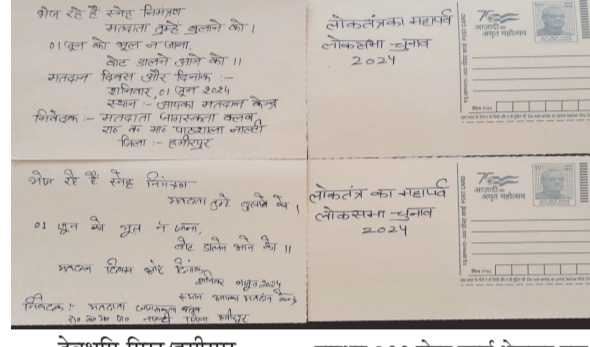 भेज रहे हैं स्नेह निमंत्रण
मतदाता तुम्हें बुलाने को ।
01 जून को भूल न जाना,
वोट डालने आने को ।।
मतदान दिवस और दिनांक :-
शनिवार, 01 जून 2024
स्थान :- आपका मतदान केन्द्र
निवेदक :- मतदाता जागरूकता क्लब
रा० क० मा० पाठशाला
जिला :- हमीरपुर
लोकतंत्र का महापर्व
लोकसभा चुनाव
2024
आज़ादी का
अमृत महोत्सव
पिन PIN
भेज रहे हैं स्नेह निमंत्रण
मतदाता तुम्हें बुलाने को ।
01 जून को भूल न जाना,
वोट डालने आने को ।।
मतदान दिवस और दिनांक
शनिवार 01 जून, 2024
स्थान आपका मतदान केन्द्र
निवेदक :- मतदाता जागरूकता क्लब
लोकतंत्र का महापर्व
लोकसभा चुनाव
2024
आज़ादी का
अमृत महोत्सव
पिन PIN